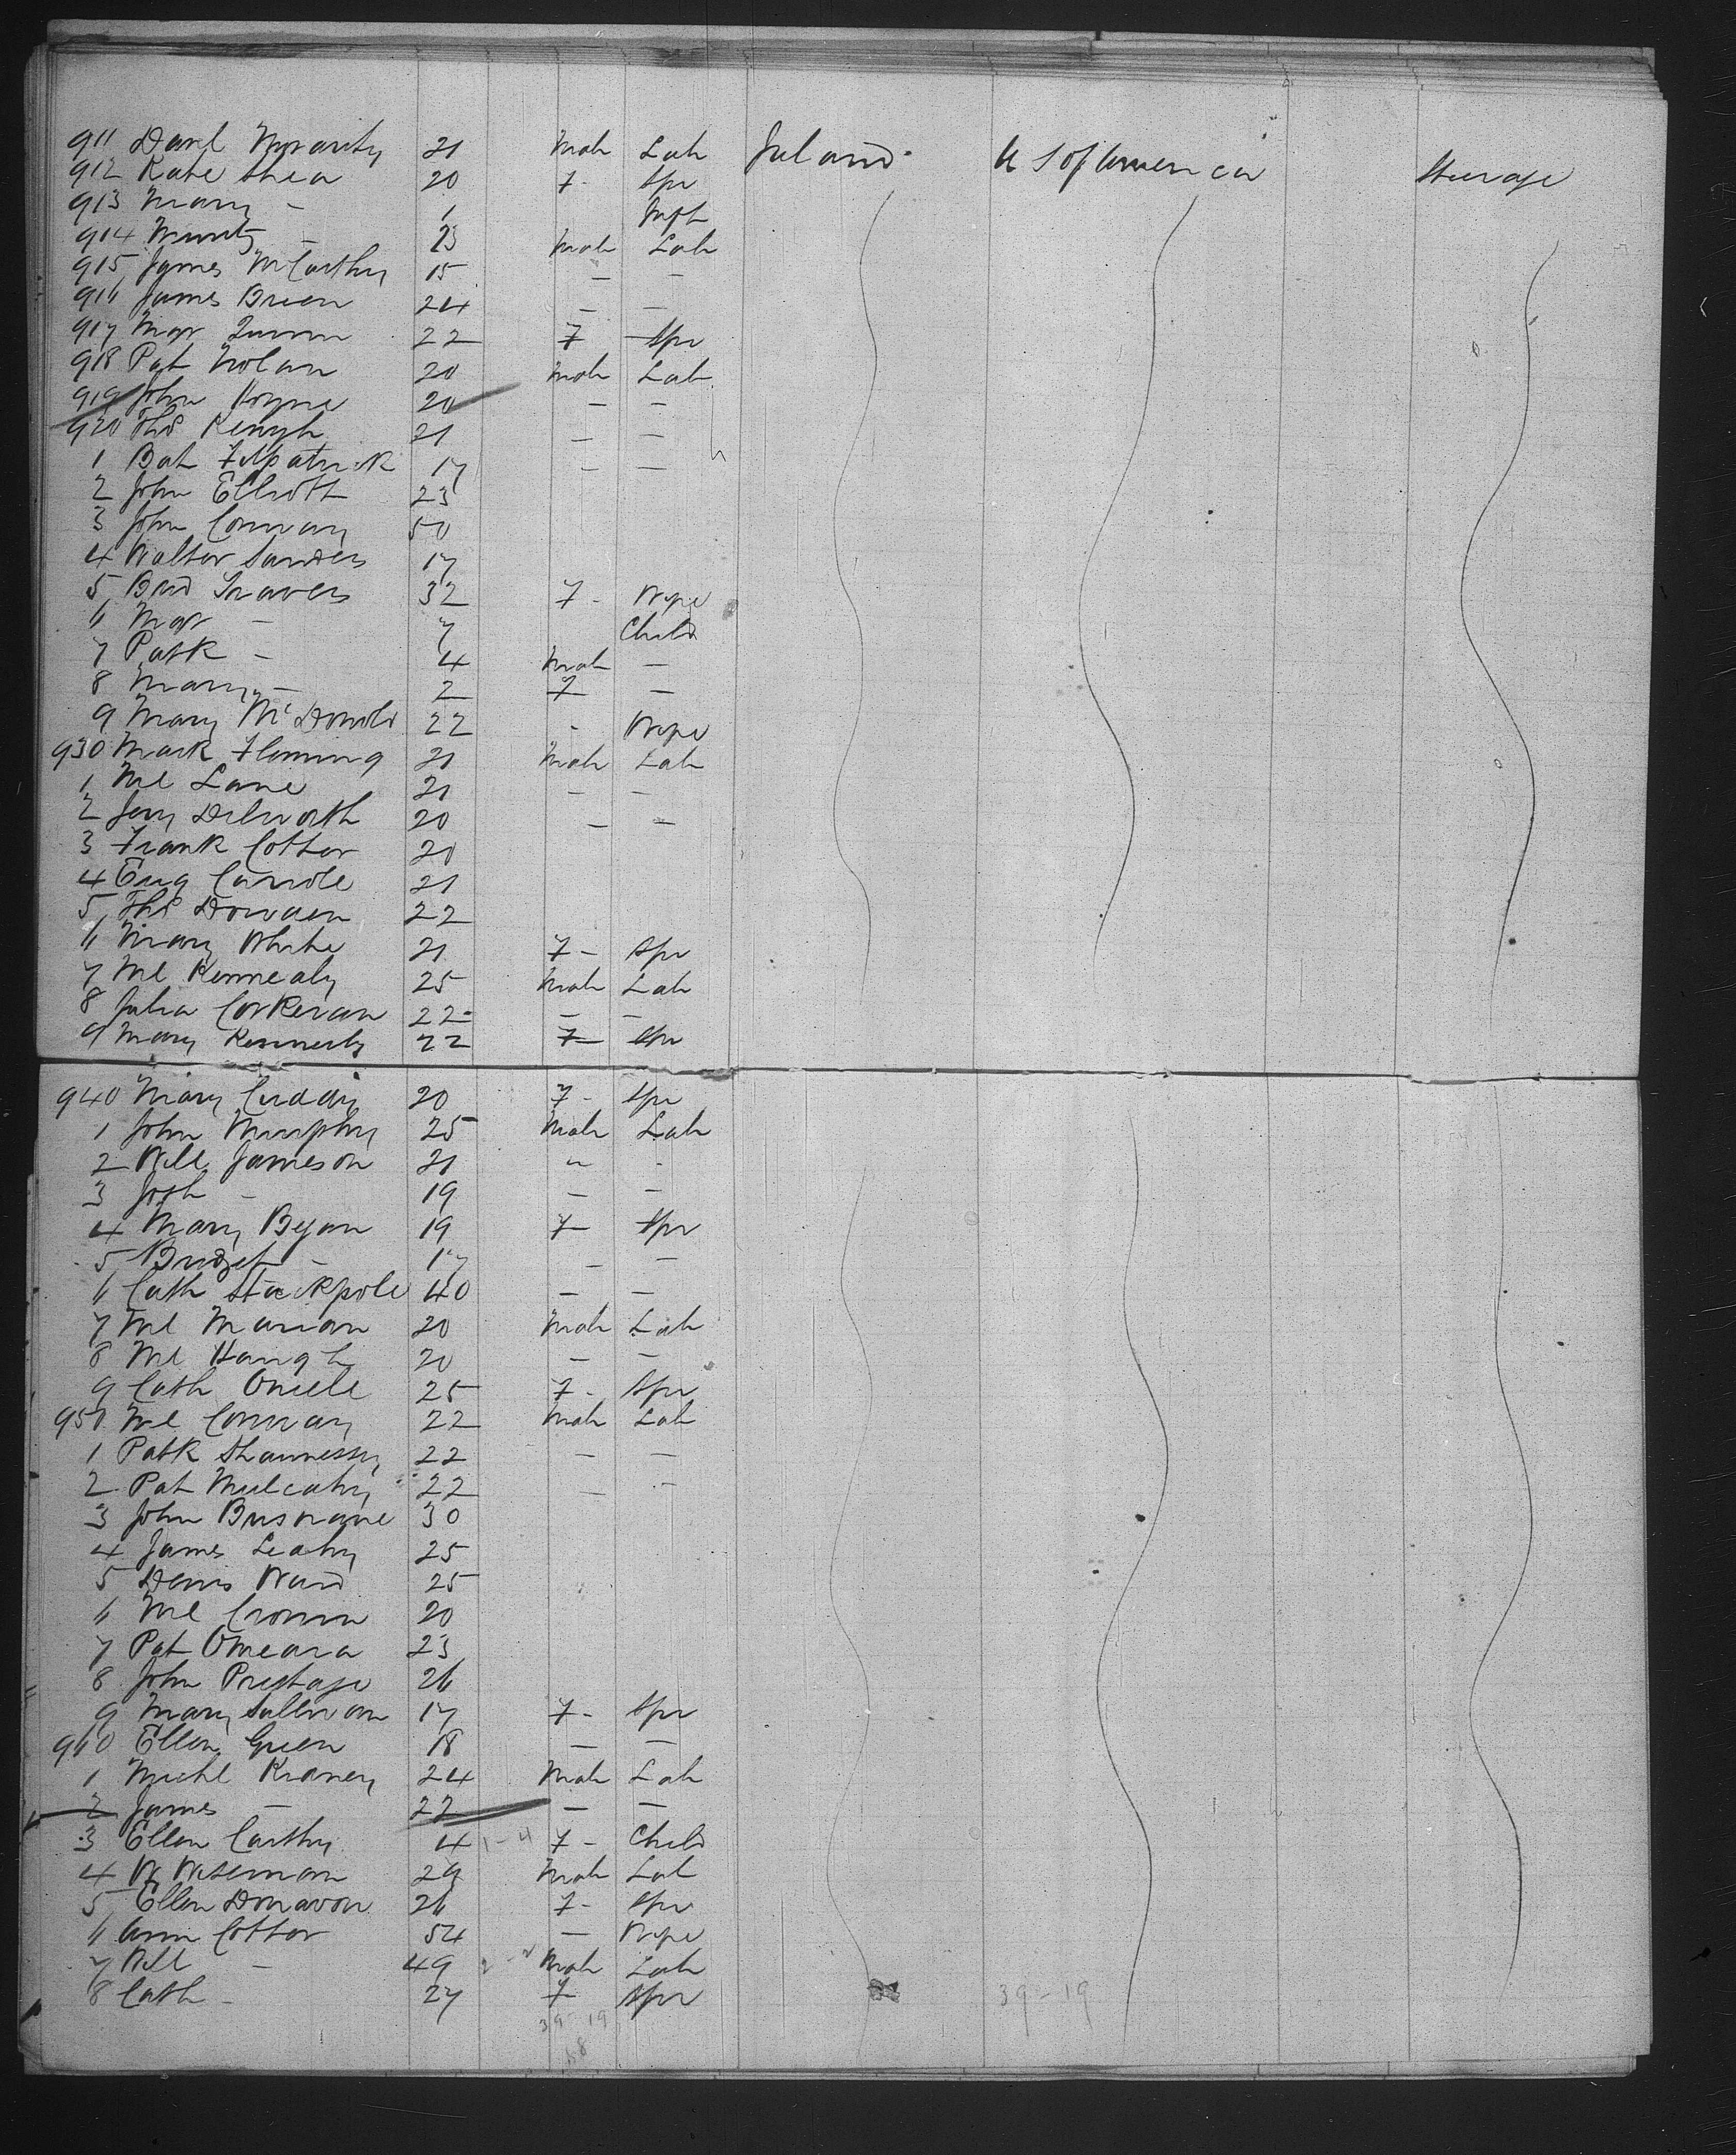 911 Danl Moriarity 21 Male Lab Ireland U S of America Steerage
912 Kate Shea 20 F - Spr
913 Mary - 1 Inft
914 Murty - 23 Male Lab
915 James McCarthy 15 — —
916 James Brien 24 — —
917 Mgr Quinn 22 F Spr
918 Pat Nolan 20 Male Lab
919 John Hoyne 20 — —
920 Ths Keough 21 — —
1 Bat Fitzpatrick 17 — —
2 John Elliott 23
3 John Conway 50
4 Walter Sanders 17
5 Brid Travers 32 F - Wife
6 Mgr - 7 Child
7 Patk - 4 Male —
8 Mary - 2 F —
9 Mary McDonald 22 - Wife
930 Mark Fleming 21 Male Lab
1 Ml Lane 21 — —
2 Jerry Dilworth 20 — —
3 Frank Cotter 20
4 Eug Carrole 21
5 Ths Dowden 22
6 Mary White 21 F - Spr
7 Ml Kennealy 25 Male Lab
8 Julia Corkeran 22 — —
9 Mary Kennerly 22 F — Spr
940 Mary Cuddy 20 F - Spr
1 John Murphy 25 Male Lab
2 Will Jameson 21 - -
3 Josh - 19 — —
4 Mary Byan 19 F - Spr
5 Bridget - 17 — —
6 Cath Stackpole 40 — —
7 Ml Marian 20 Male Lab
8 Ml Haugh 20 — —
9 Cath Oniele 25 F - Spr
950 Ml Conway 22 Male Lab
1 Patk Shannessy 22 — —
2 Pat Mulcahy 22 — —
3 John Brusnane 30
4 James Leahy 25
5 Denis Ward 25
6 Ml Cronin 20
7 Pat Omeara 23
8 John Prestage 26
9 Mary Sullivan 17 F - Spr
960 Ellen Green 18 — —
1 Michl Kidney 24 Male Lab
2 James — 22 — —
3 Ellen Carthy 4 1-4 F - Child
4 W Wiseman 29 Male Lab
5 Ellen Donavon 26 F - Spr
6 Ann Cotter 54 — Wife
7 Will — 49 Male Lab
8 Cath - 27 F Spr
39-19 39-19
58